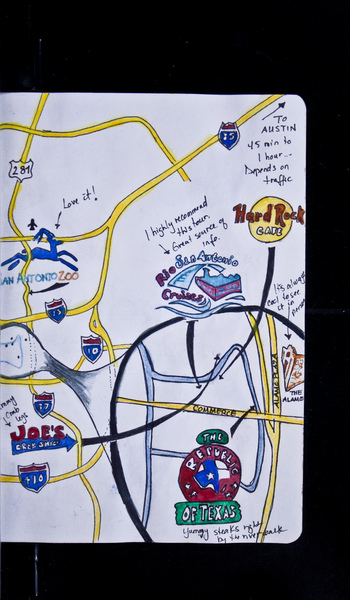 TO
AUSTIN
45 min to
1 hour...
Depends on
traffic
35
281
Love it!
I highly recommend
this tour.
Great source of
info.
Hard Rock
CAFE
SAN ANTONIO ZOO
Rio San Antonio
Cruises
It's always
cool to see
it in
person
35
10
THE
ALAMO
ALAMO PLAZA
COMMERCE
37
JOE'S
CRAB SHACK
10
THE
REPUBLIC
OF TEXAS
Yummy steaks right
by the river walk